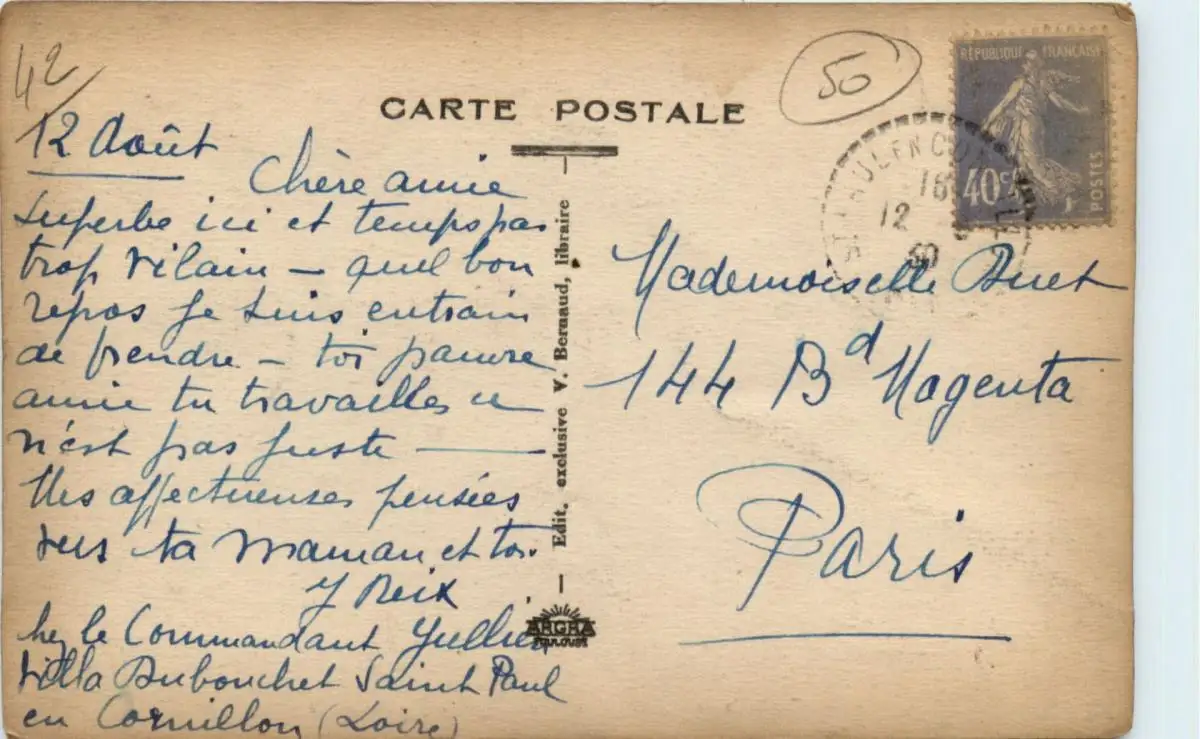 42
50
CARTE POSTALE
RÉPUBLIQUE FRANÇAISE
40c
POSTES
18
12
30
12 Août
Chère amie
superbe ici et temps pas
trop vilain – quel bon
repos je suis entrain
de prendre – toi pauvre
amie tu travailles ce
n'est pas juste —
Mes affectueuses pensées
vers ta Maman et toi.
Y Reix
chez le Commandant Jullien
villa Dubouchet Saint Paul
en Cornillon (Loire)
Edit. exclusive V. Bernaud, libraire
ARGRA
TOULOUSE
Mademoiselle
144 Bd Magenta
Paris